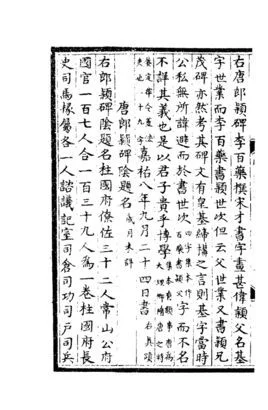 右唐郎穎碑李百藥撰宋才書字畫甚偉穎父名基
字世業而李百藥書穎世次但云父世業又書穎兄
茂碑亦然考其碑文有皇基締搆之言則基字當時
公私無所諱避而於書世次四字集本作百藥書穎父字而不名
不詳其義也是以君子貴乎博學
嘉祐八年九月二十四日書右真蹟
唐郎穎碑陰題名歲月未詳
右郎穎碑陰題名柱國府僚佐三十二人常山公府
國官一百七人合一百三十九人爲一卷柱國府長
史司馬掾屬各一人諮議記室司倉司功司戶司兵